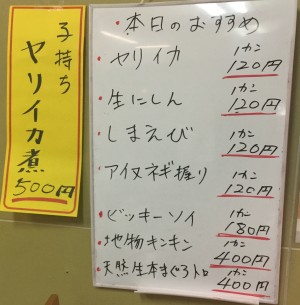 子持ち
ヤリイカ煮
500円
・本日のおすすめ
・ヤリイカ 1カン 120円
・生にしん 1カン 120円
・しまえび 1カン 120円
・アイヌネギ握り 1カン 120円
・ビッキーソイ 1カン 180円
・地物キンキン 1カン 400円
・天然生本まぐろトロ 1カン 400円